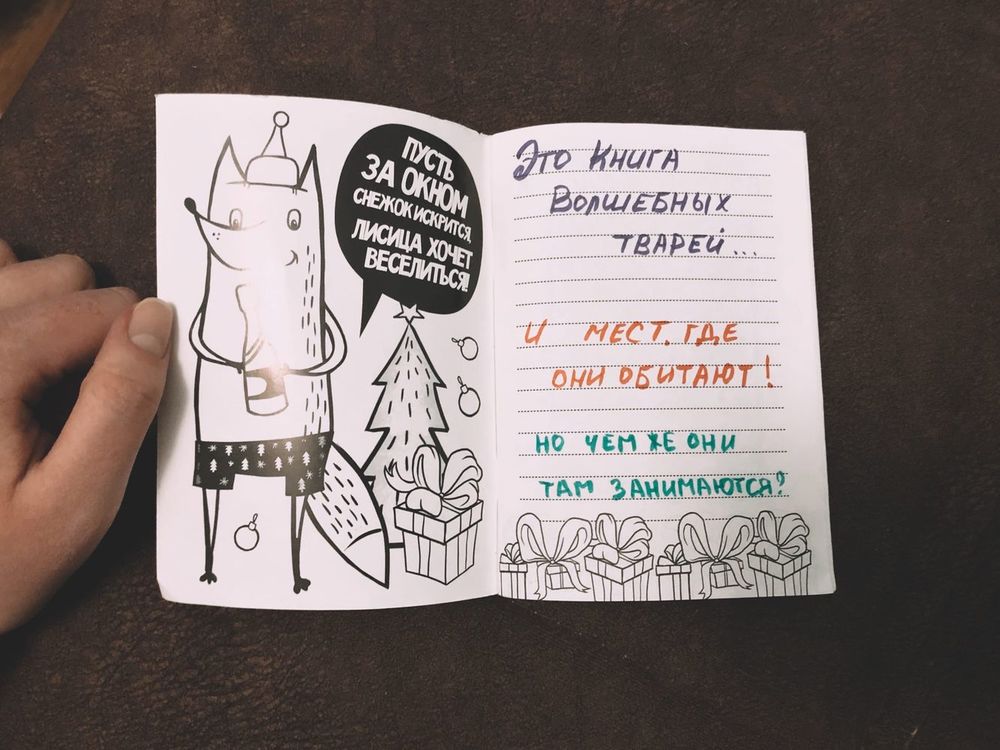 ПУСТЬ
ЗА ОКНОМ
СНЕЖОК ИСКРИТСЯ,
ЛИСИЦА ХОЧЕТ
ВЕСЕЛИТЬСЯ!
Это Книга
Волшебных
тварей...
И мест, где
они обитают!
Но чем же они
там занимаются?